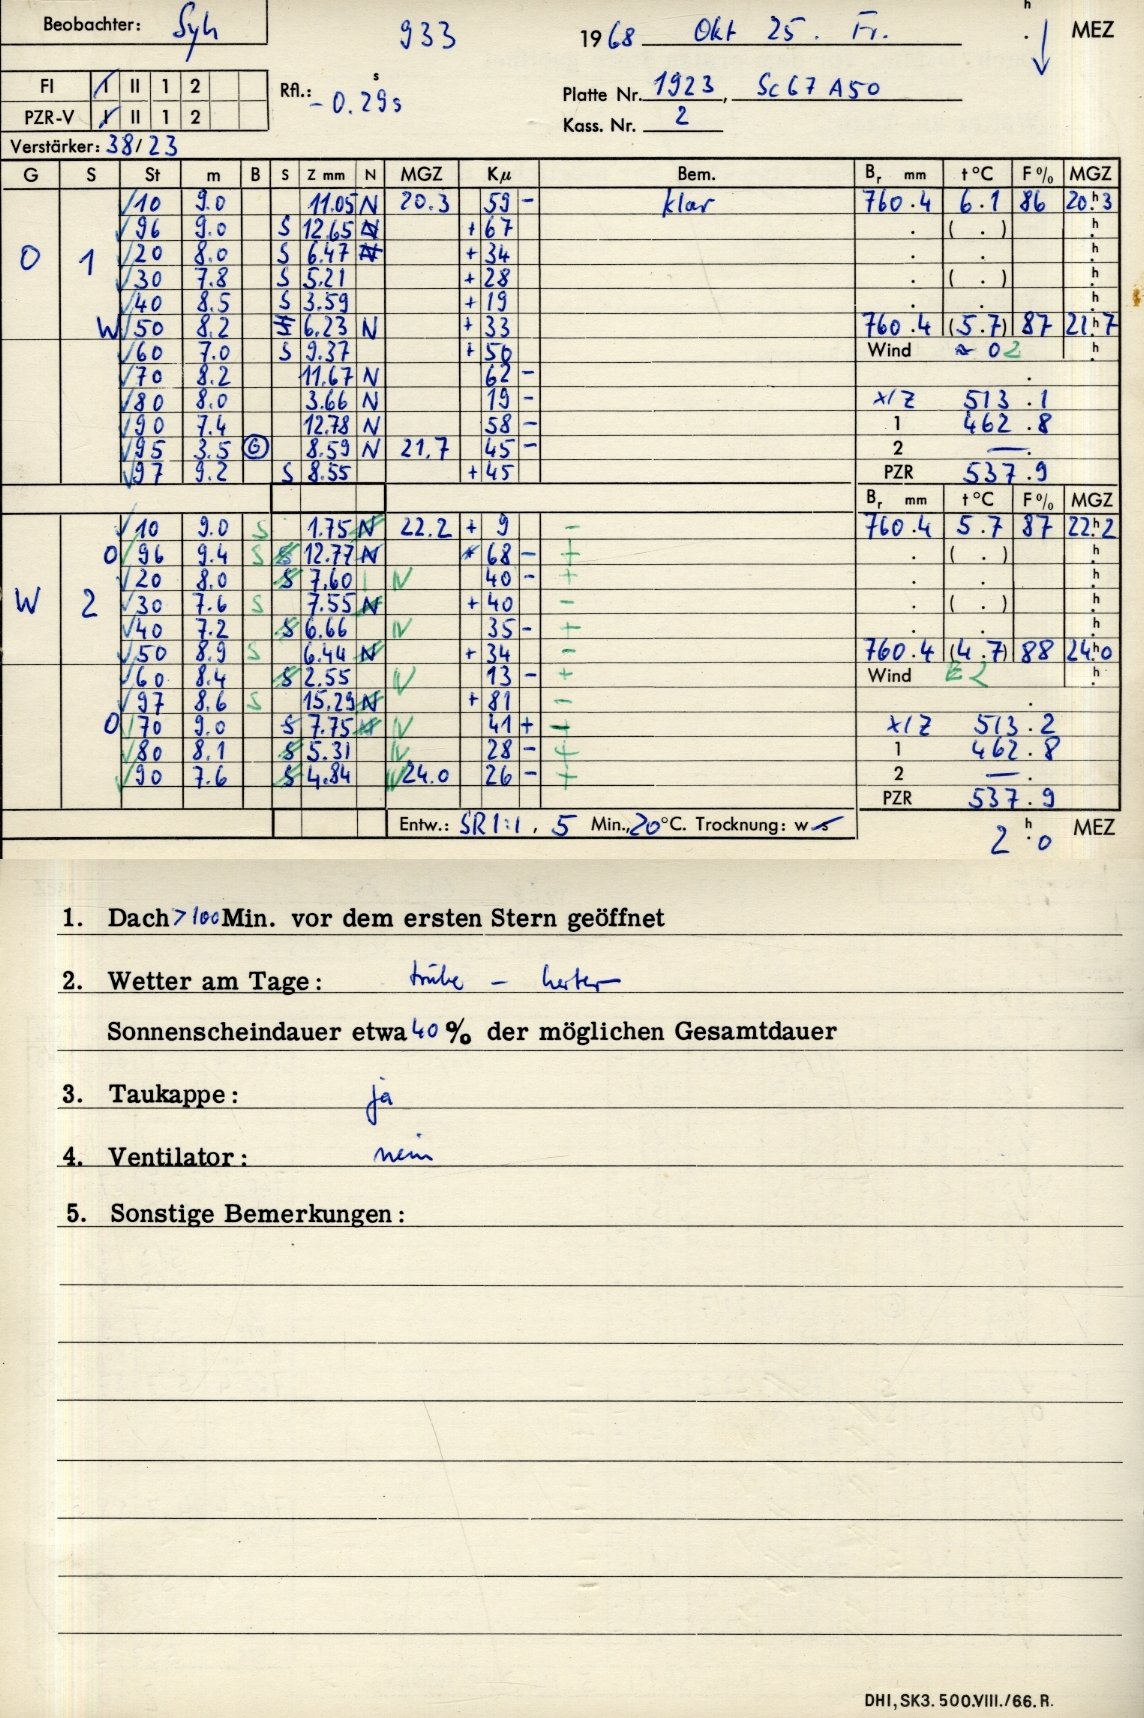 Beobachter: Syh 933 1968 Okt 25. Fr. h . MEZ
FI I II 1 2 Rfl.: -0.29s s Platte Nr. 1923, Sc67 A50
PZR-V I II 1 2 Kass. Nr. 2
Verstärker: 38/23
G S St m B S Z mm N MGZ Kμ Bem. Br mm t °C F % MGZ
10 9.0 11.05 N 20.3 59 - klar 760.4 6.1 86 20h3
96 9.0 S 12.65 N + 67 . ( . ) h
O 1 20 8.0 S 6.47 N + 34 . . h
30 7.8 S 5.21 + 28 . ( . ) h
40 8.5 S 3.59 + 19 . . h
W 50 8.2 S 6.23 N + 33 760.4 (5.7) 87 21h7
60 7.0 S 9.37 + 50 Wind ≈ 02 h
70 8.2 11.67 N 62 - .
80 8.0 3.66 N 19 - x/Z 513.1
90 7.4 12.78 N 58 - 1 462.8
95 3.5 G 8.59 N 21.7 45 - 2 — .
97 9.2 S 8.55 + 45 PZR 537.9
Br mm t °C F % MGZ
10 9.0 S 1.75 N 22.2 + 9 - 760.4 5.7 87 22h2
O 96 9.4 S S 12.77 N 68 - + . ( . ) h
20 8.0 S 7.60 N 40 - + . . h
W 2 30 7.6 S 7.55 N + 40 - . ( . ) h
40 7.2 S 6.66 N 35 - + . . h
50 8.9 S 6.44 N + 34 - 760.4 (4.7) 88 24h0
60 8.4 S 2.55 N 13 - + Wind E2 h
97 8.6 S 15.29 N + 81 - .
O 70 9.0 S 7.75 N N 41 + x/Z 513.2
80 8.1 S 5.31 N 28 - + 1 462.8
90 7.6 S 4.84 N 24.0 26 - + 2 — .
PZR 537.9
Entw.: SR 1:1, 5 Min., 20°C. Trocknung: w s 2 h . 0 MEZ
1. Dach >100 Min. vor dem ersten Stern geöffnet
2. Wetter am Tage: trübe – heiter
Sonnenscheindauer etwa 40 % der möglichen Gesamtdauer
3. Taukappe: ja
4. Ventilator: nein
5. Sonstige Bemerkungen:
DHI, SK3. 500.VIII./66. R.